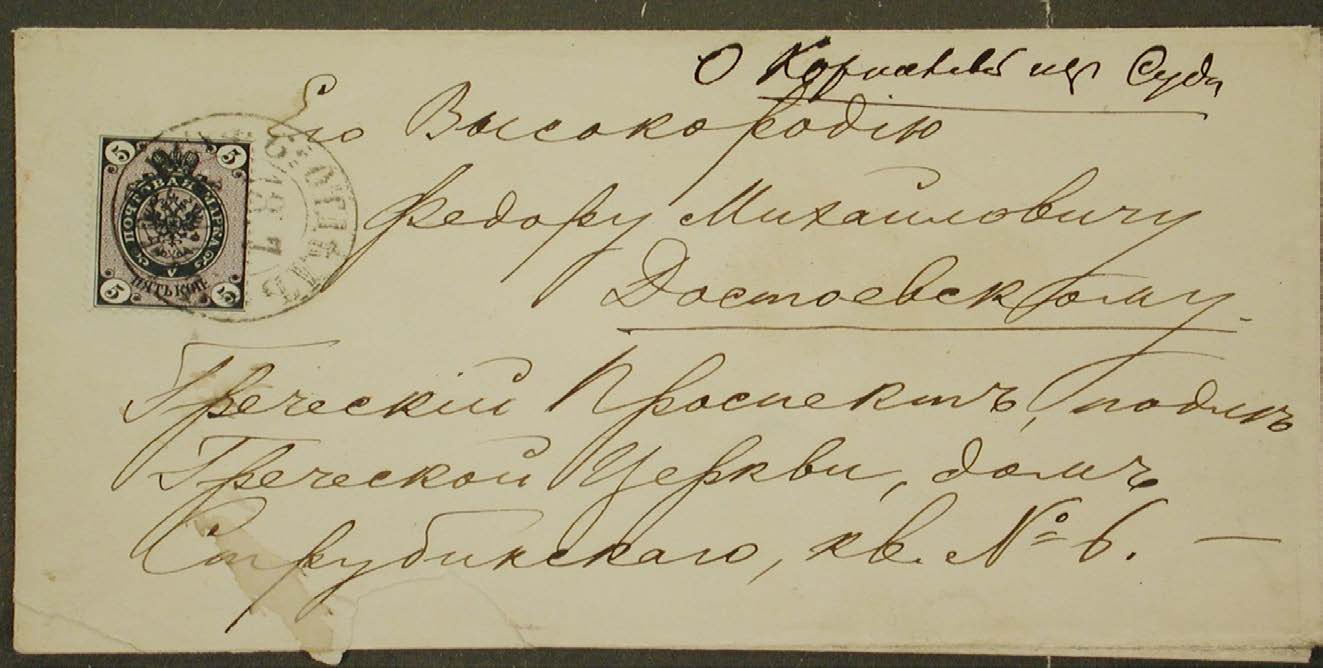 О Корниловой из Суда
Его Высокородію
Федору Михайловичу
Достоевскому.
Греческій Проспектъ, подлѣ
Греческой Церкви, домъ
Струбинскаго, кв. № 6. —
5 5
ПОЧТОВАЯ МАРКА
ПЯТЬ КОП.
5 5
ОТДѢЛ